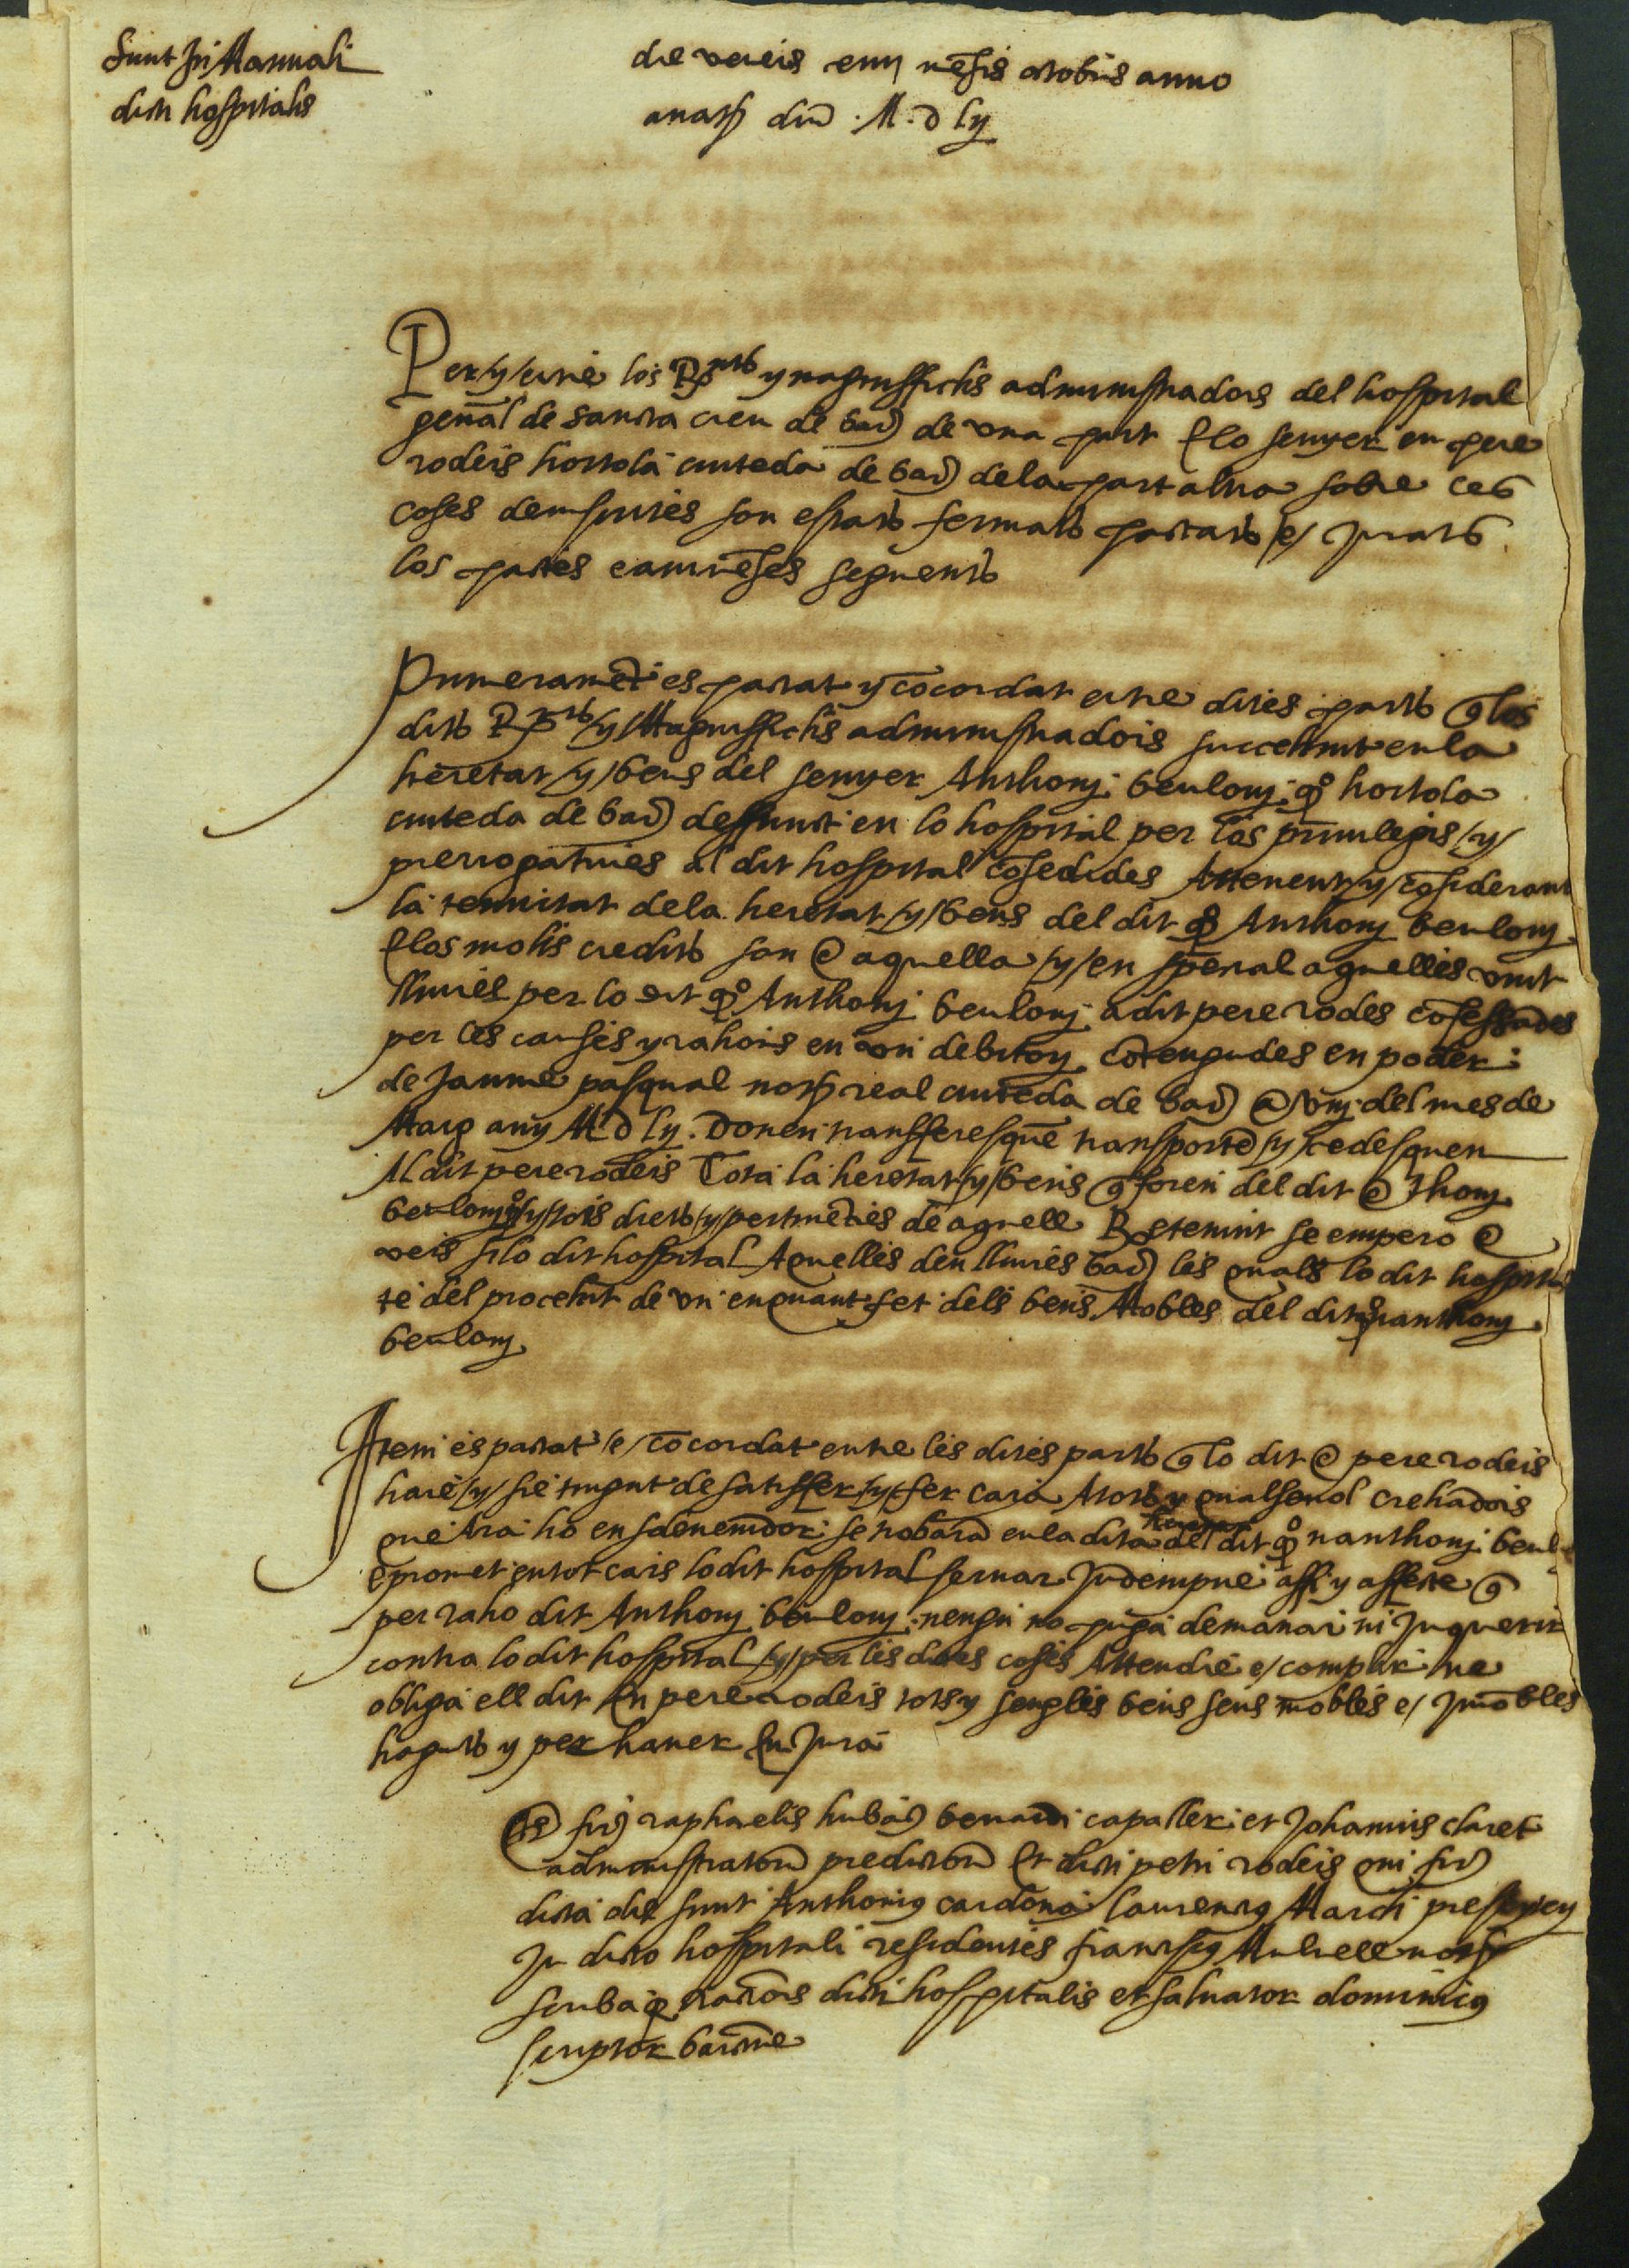 Sunt in Manuali
dicti hospitalis
die veneris mēsis octobris anno
a natʳ dn̄i M.D lij
Per y entre los Rts y magniffichs administradors del hospital
genāl de sancta creu de bar̄ de una part e lo senyer en pere
roders hortola ciuteda de bar̄ de la part altra sobre les
coses deuscrites son estats fermats pactats e jurats
los pactes e auinēses seguents
Primeramēt es pactat y cōcordat entre dites parts q̄ los
dits Rts y Magniffichs administradors succehint en la
heretat y bens del senyer Anthonj beulonj q̊ hortola
ciuteda de bar̄ deffunct en lo hospital per los priuilegis y
prerrogatiues al dit hospital cōsedides Attenent y cōsiderant
la tenuitat de la heretat y bens del dit q̊ Anthonj beulonj
e los molts credits son en aquella y en spenal aquelles vint
lliures per lo dit q̊ Anthonj beulonj a dit pere rodes cōfessades
per les causes y rahons en vn debitorj cōtengudes en poder
de Jaume pasqual notʳ real ciuteda de bar̄ a vnj del mes de
Marg any M D lij. Donen transfferesquē transportē y cedesquen
Al dit pere roders Tota la heretat y bens q̄ foren del dit en thonj
beulonj q̊ y tots drets y pertinēties de aquell Retenint se empero en
veis si lo dit hospital Aquelles deu lliures bar̄ les quals lo dit hospital
te del procehit de vn encuant fet dels bens Mobles del dit q̊ nanthonj
beulonj
Item es pactat e cōcordat entre les dites parts q̄ lo dit en pere roders
hare y sie tingut de satisffer y fer cara A tots y qualseuol crehadors
que Ara ho en sdeuenidor se trobarā en la dita heretat del dit q̊ nanthonj beulo
e promet en tot cars lo dit hospital seruar Indempne assi y affecte q̄
per raho dit Anthonj beulonj nengu no puga demanar ni Inquerir
contra lo dit hospital y per les dites coses Attendre e complir ne
obliga ell dit En pere roders tots y sengles bens seus mobles e Imobles
haguts y per hauer En Jurā
raphaelis hubach benardi capaller et Johannis claret
administratorū predictorū Et dicti petri roders qui firᵗ
dicta die sunt Anthonius cardona laurentius March presbyteri
In dicto hospitali residentes francisc⁹ Mulrell notʳ
scriba rationis dicti hospitalis et saluator dominic⁹
scriptor barcine